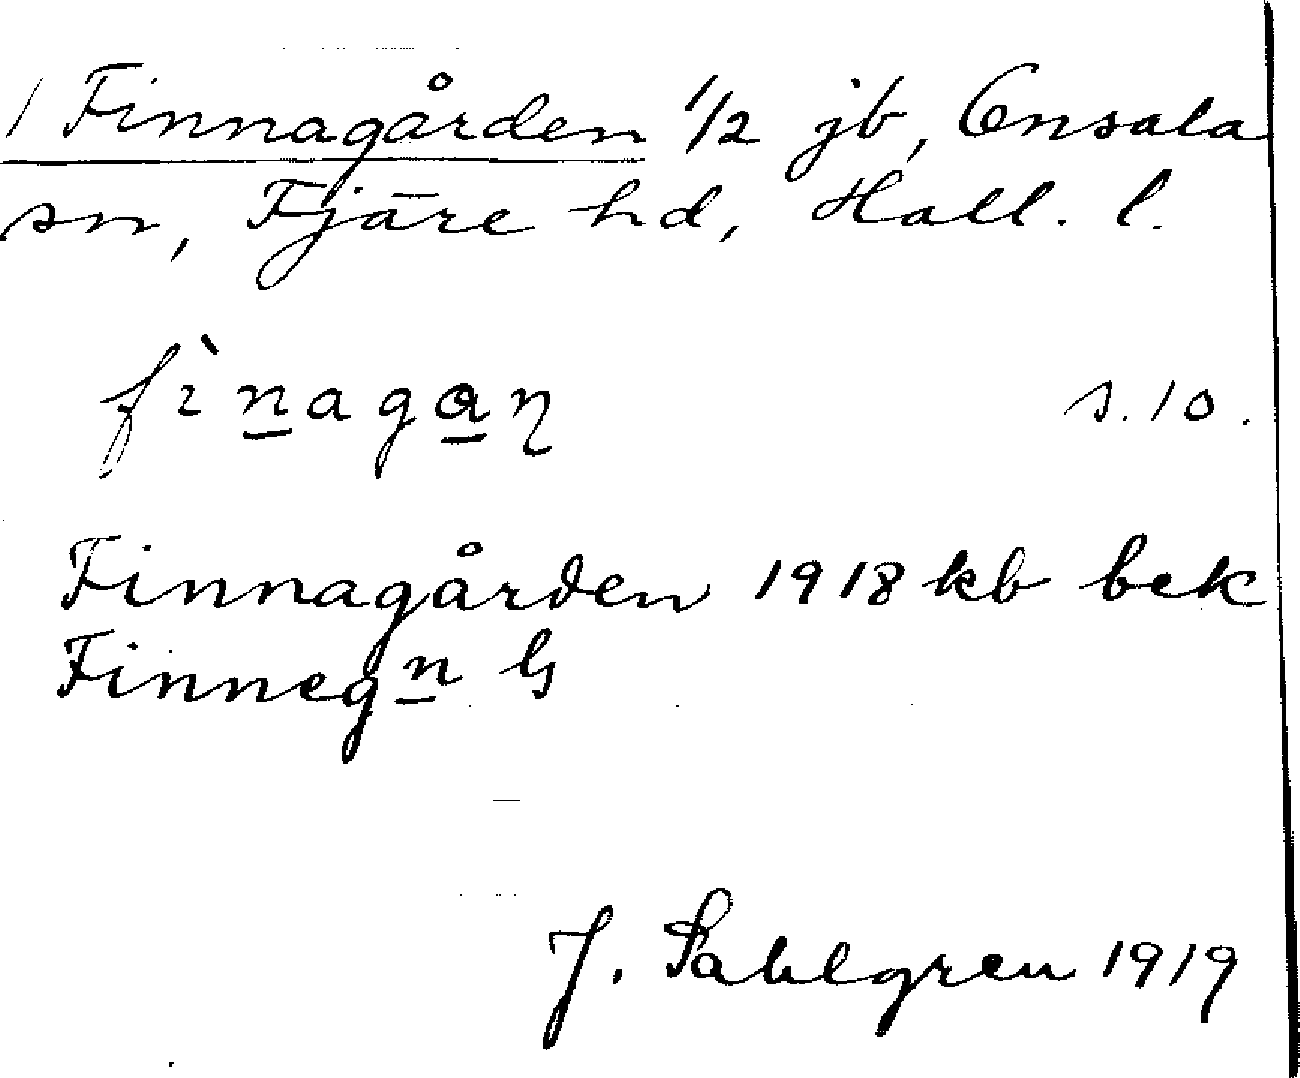 / Finnagården 1/2 jb, Onsala
sn, Fjäre hd, Hall. l.
fìnagaɳ s. 10.
Finnagården 1918 kb bek
Finnegn
J. Sahlgren 1919